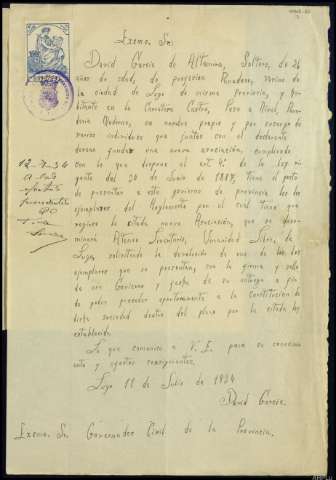 Exsmo. Sr:
David García de Altamira, Soltero, de 26
años de edad, de profesión Panadero, vecino de
la ciudad de Lugo de misma provincia, y
en la Carretera Castro, Paso a Nivel, Panadería
Moderna, en nombre propio y por encargo de
varios individuos que juntos con el declarante
desean fundar una nueva asociación, cumpliendo
con lo que dispone el art. 4º de la ley vi
gente del 30 de Junio de 1887, tiene el gusto
de presentar a este gobierno de provincia los
ejemplares del Reglamento por el cual tiene que
regirse la citada nueva Asociación, que se deno
minará Ateneo Libertario, Universidad Libre, de
Lugo, solicitando la devolución de uno de los dos
ejemplares que se presentan, con la firma y sello
de ese Gobierno y fecha de su entrega a fin
de poder proceder oportunamente a la constitución de
dicha sociedad dentro del plazo por la citada ley
establecido.
Lo que comunico a V.E. para su conocimi
ento y efectos consiguientes.
Lugo 11 de Julio de 1934
David García.
Exsmo. Sr. Gobernador Civil de la Provincia.
12-7-34
A los
efectos